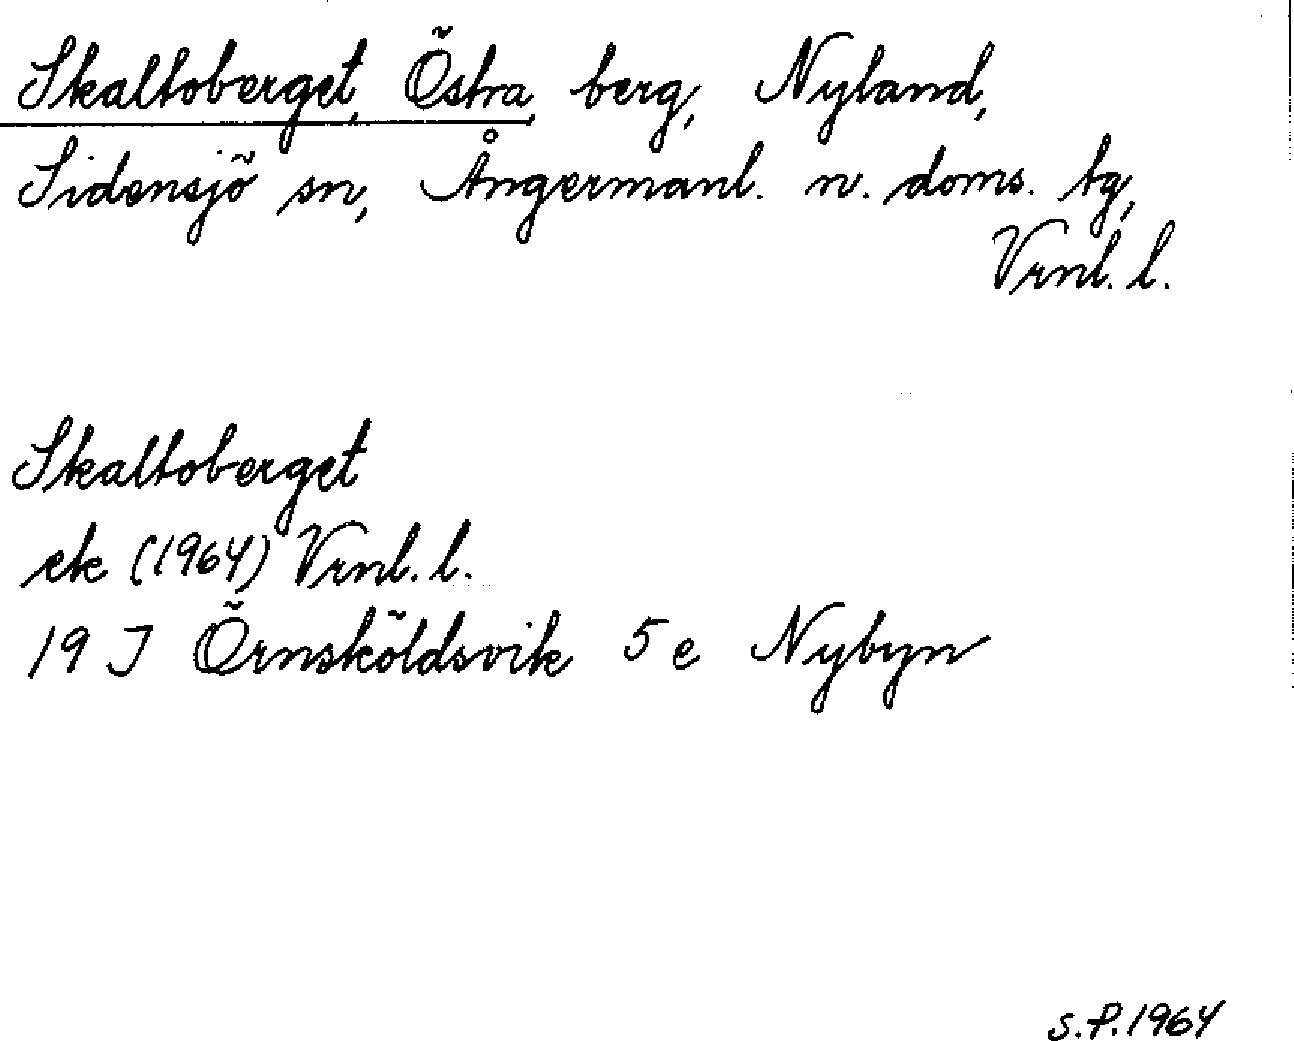 Skaltoberget, Östra, berg, Nyland,
Sidensjö sn, Ångermanl. n. doms. tg,
Vrnl. l.
Skaltoberget
ek (1964) Vrnl. l.
19 J Örnsköldsvik 5 e Nybyn
S.P. 1964